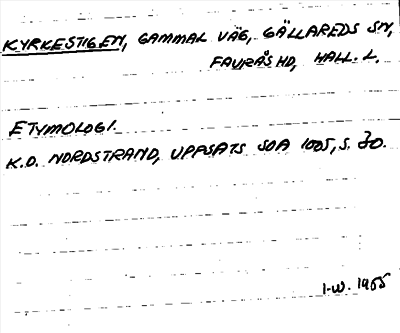 KYRKESTIGEN, GAMMAL VÄG, GÄLLAREDS SN,
FAURÅS HD, HALL. L.
ETYMOLOGI.
K.D. NORDSTRAND, UPPSATS SOA 1005, S. 30.
I-W. 1955